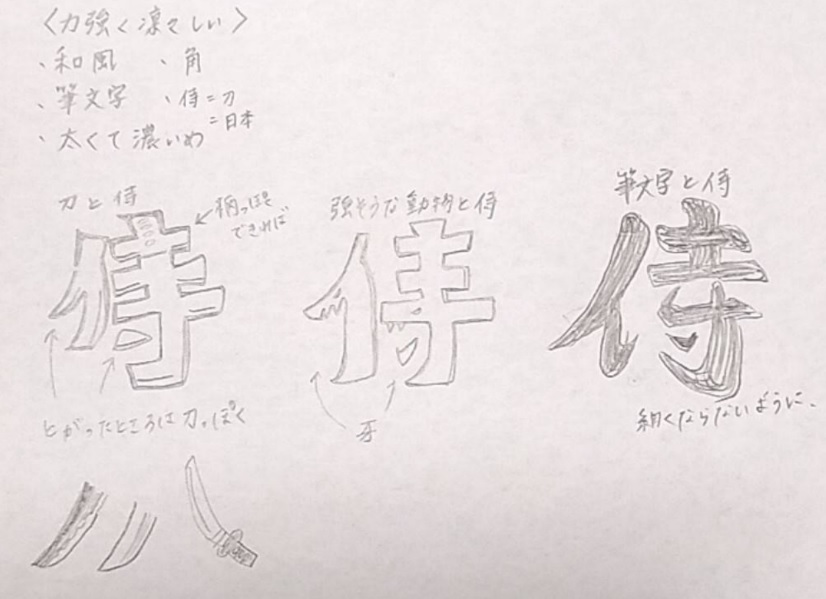 〈力強く凛々しい〉
、和風 、角
、筆文字 、侍=刀
=日本
、太くて濃いめ
刀と侍
←柄っぽさ
できれば
侍
とがったところは刀っぽく
強そうな動物と侍
侍
牙
筆文字と侍
侍
細くならないように、